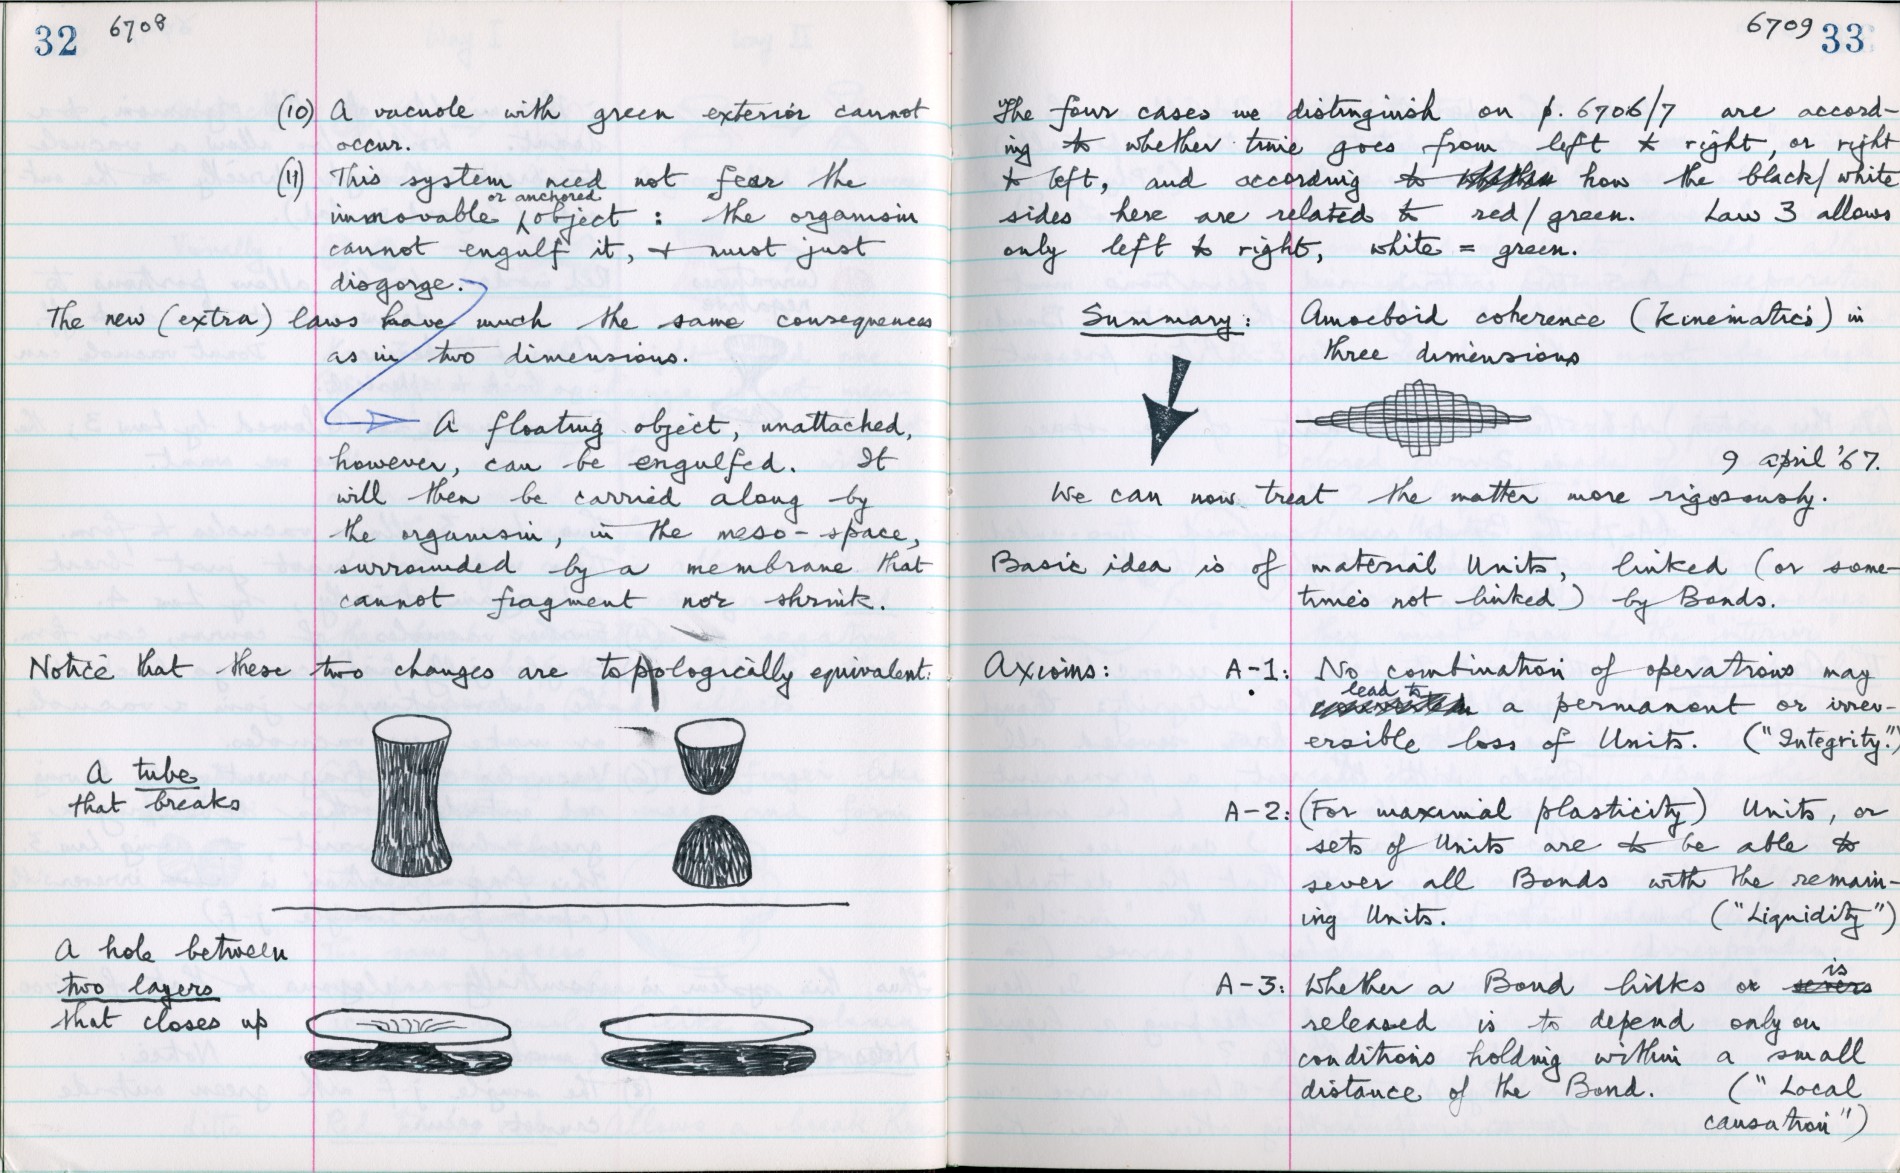 32 6708
(10) A vacuole with green exterior cannot
occur.
(11) This system need not fear the
immovable or anchored object : the organism
cannot engulf it, + must just
disgorge.
The new (extra) laws have much the same consequences
as in two dimensions.
A floating object, unattached,
however, can be engulfed. It
will then be carried along by
the organism, in the meso-space,
surrounded by a membrane that
cannot fragment nor shrink.
Notice that these two changes are topologically equivalent:
A tube
that breaks
A hole between
two layers
that closes up
6709 33
The four cases we distinguish on p. 6706/7 are accord-
ing to whether time goes from left to right, or right
to left, and according to how the black/white
sides here are related to red/green. Law 3 allows
only left to right, white = green.
Summary: Amoeboid coherence (kinematics) in
three dimensions
9 april '67.
We can now treat the matter more rigorously.
Basic idea is of material Units, linked (or some-
times not linked) by Bonds.
Axioms: A-1: No combination of operations may
lead to a permanent or irrev-
ersible loss of Units. ("Integrity.")
A-2: (For maximal plasticity) Units, or
sets of Units are to be able to
sever all Bonds with the remain-
ing Units. ("Liquidity")
A-3: Whether a Bond links or severs is
released is to depend only on
conditions holding within a small
distance of the Bond. ("Local
causation")